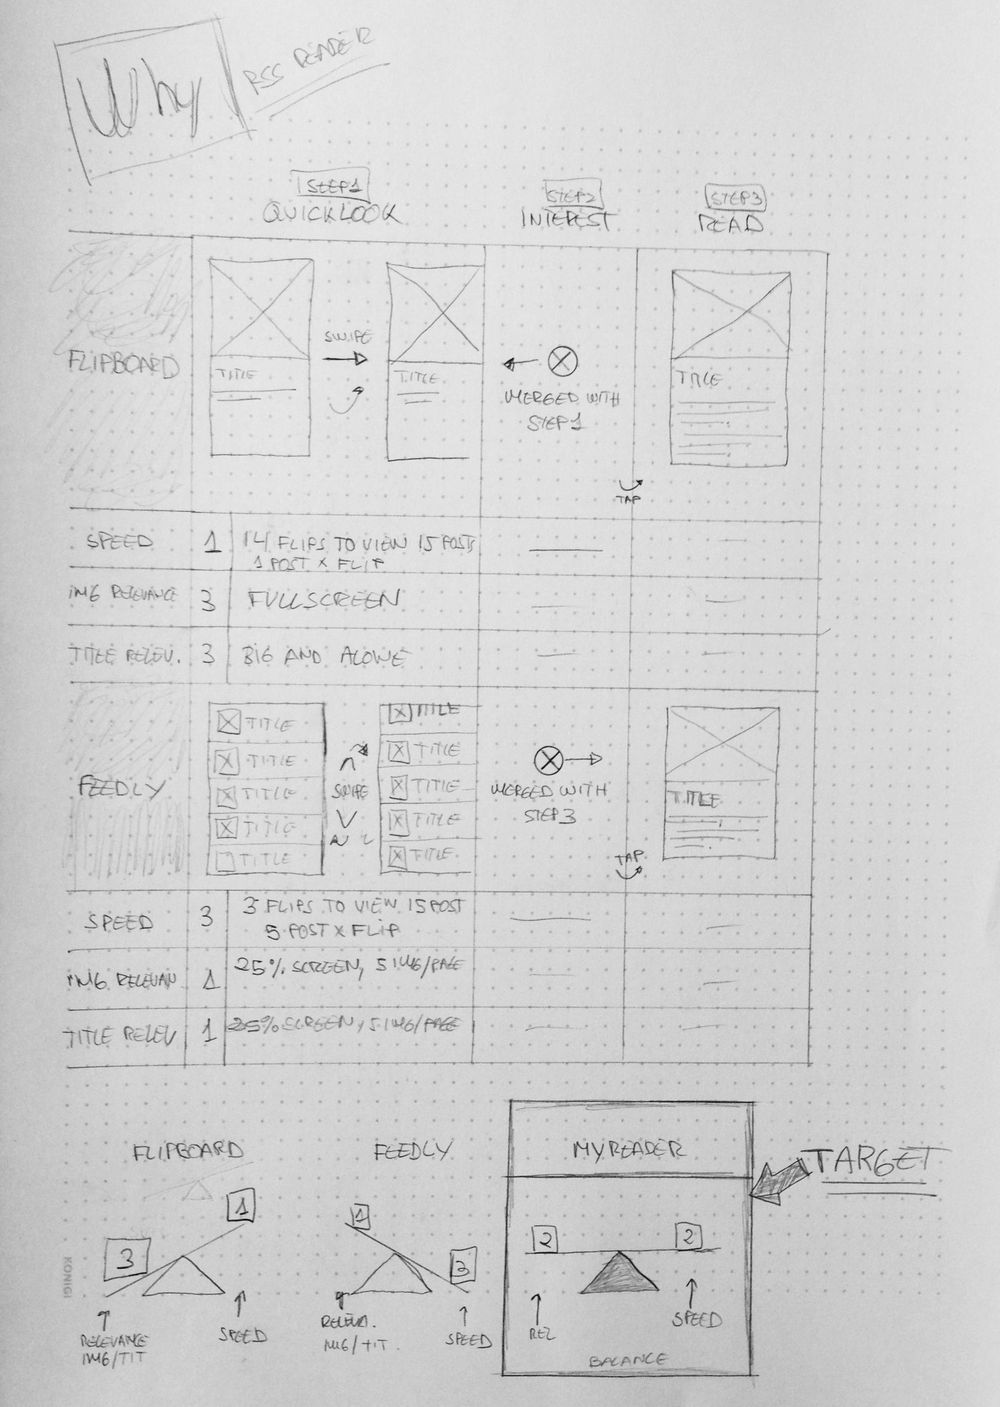 Why
RSS READER
STEP1
QUICKLOOK
STEP2
INTEREST
STEP3
READ
FLIPBOARD
TITLE
SWIPE
TITLE
MERGED WITH
STEP1
TITLE
TAP
SPEED
1
14 FLIPS TO VIEW 15 POSTS
1 POST x FLIP
IMG RELEVANCE
3
FULLSCREEN
TITLE RELEV.
3
BIG AND ALONE
FEEDLY
TITLE
TITLE
TITLE
TITLE
TITLE
SWIPE
TITLE
TITLE
TITLE
TITLE
TITLE
MERGED WITH
STEP3
TITLE
TAP
SPEED
3
3 FLIPS TO VIEW 15 POST
5 POST x FLIP
IMG RELEVAN
1
25% SCREEN, 5 IMG/PAGE
TITLE RELEV
1
25% SCREEN, 5 IMG/PAGE
FLIPBOARD
3
1
RELEVANCE
IMG/TIT
SPEED
FEEDLY
1
3
RELEVA.
IMG/TIT.
SPEED
MYREADER
2
2
REL
SPEED
BALANCE
TARGET
KONIGI